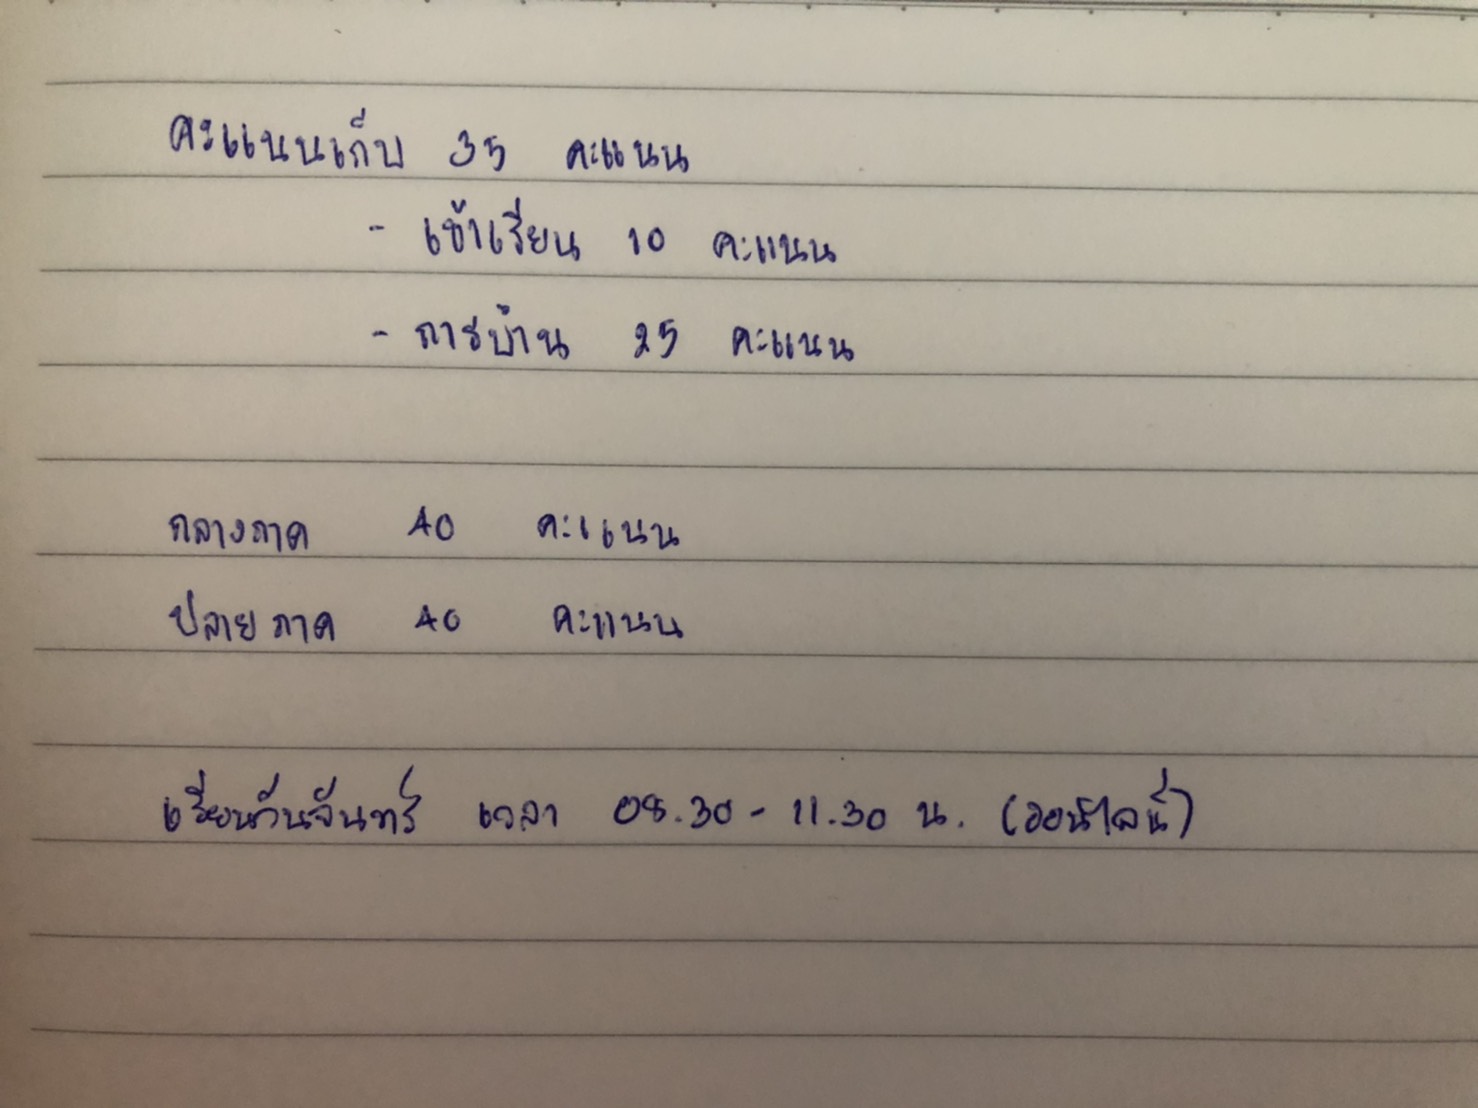 คะแนนเก็บ 35 คะแนน
- เข้าเรียน 10 คะแนน
- การบ้าน 25 คะแนน
กลางภาค 40 คะแนน
ปลายภาค 40 คะแนน
เรียนวันจันทร์ เวลา 08.30 - 11.30 น. (ออนไลน์)